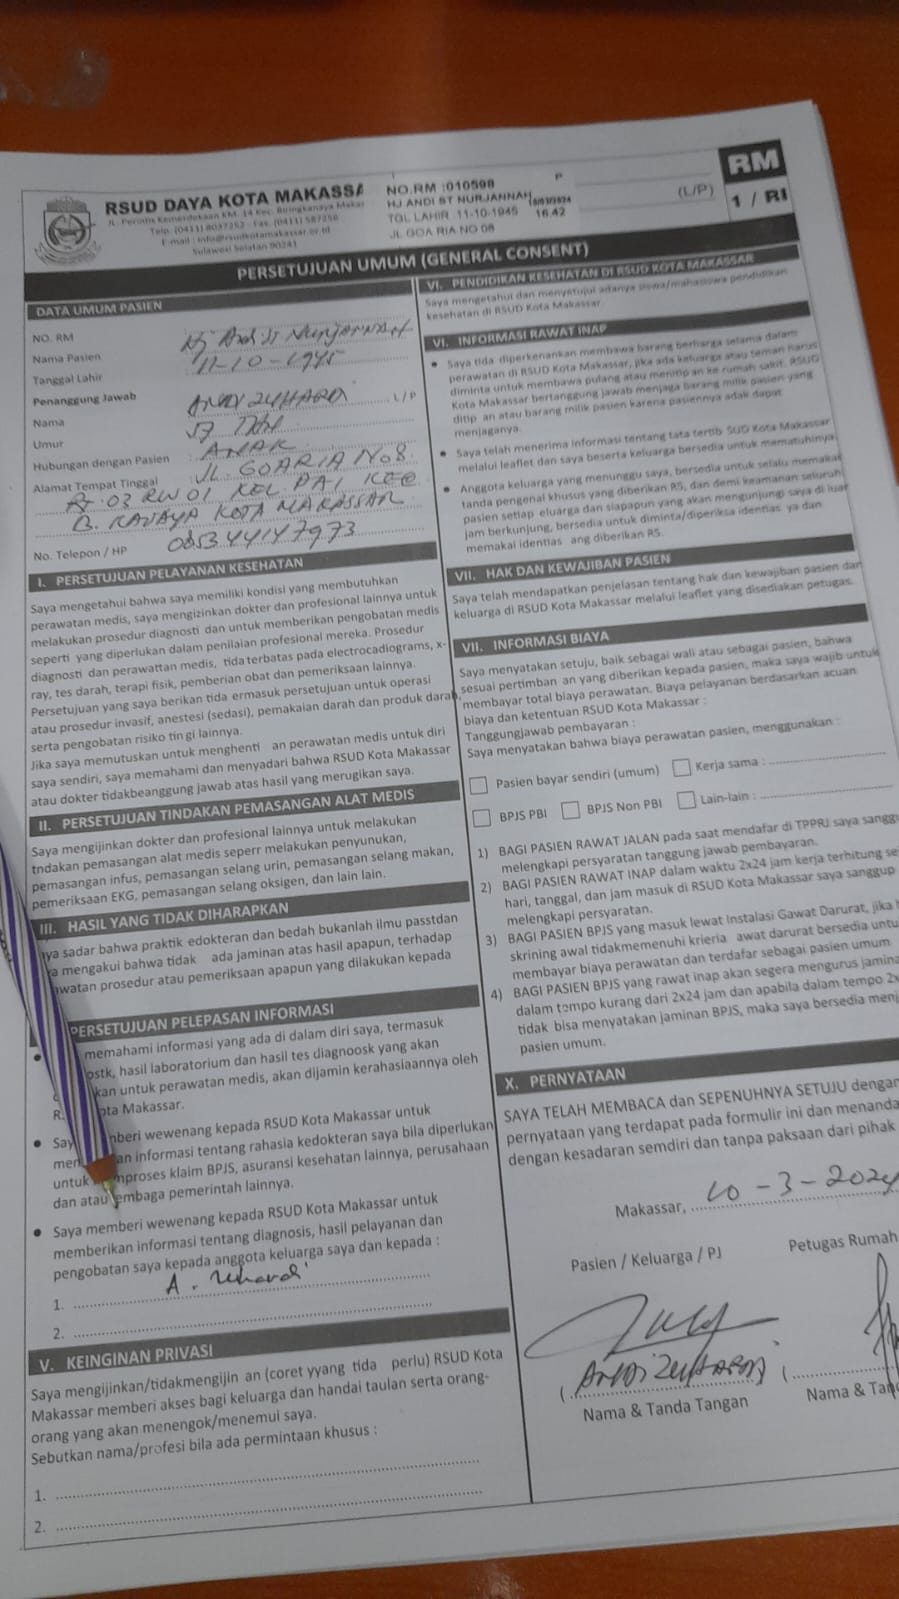 RSUD DAYA KOTA MAKASSA
JL. Perintis Kemerdekaan KM. 14 Kec. Biringkanaya Makas
Telp. (0411) 8037252 - Fax. (0411) 587256
E-mail : info@rsudkotamakassar.or.id
Sulawesi Selatan 90241
NO.RM :010598
P
HJ ANDI ST NURJANNAH
TGL LAHIR 11-10-1945
16.42
JL GOA RIA NO 08
(L/P)
RM
1 / RI
PERSETUJUAN UMUM (GENERAL CONSENT)
DATA UMUM PASIEN
NO. RM
Nama Pasien Hj Andi St Nurjannah
Tanggal Lahir 11-10-1945
Penanggung Jawab
Nama ANDI ZUHARDI L/P
Umur 57 THN
Hubungan dengan Pasien ANAK
Alamat Tempat Tinggal JL. GOARIA No8
RT 03 RW 01 KEL PAI KEC
B. KANAYA KOTA MAKASSAR
No. Telepon / HP 085344147973
I. PERSETUJUAN PELAYANAN KESEHATAN
Saya mengetahui bahwa saya memiliki kondisi yang membutuhkan
perawatan medis, saya mengizinkan dokter dan profesional lainnya untuk
melakukan prosedur diagnosti dan untuk memberikan pengobatan medis
seperti yang diperlukan dalam penilaian profesional mereka. Prosedur
diagnosti dan perawattan medis, tida terbatas pada electrocadiograms, x-
ray, tes darah, terapi fisik, pemberian obat dan pemeriksaan lainnya.
Persetujuan yang saya berikan tida ermasuk persetujuan untuk operasi
atau prosedur invasif, anestesi (sedasi), pemakaian darah dan produk darah,
serta pengobatan risiko tin gi lainnya.
Jika saya memutuskan untuk menghenti an perawatan medis untuk diri
saya sendiri, saya memahami dan menyadari bahwa RSUD Kota Makassar
atau dokter tidakbeanggung jawab atas hasil yang merugikan saya.
II. PERSETUJUAN TINDAKAN PEMASANGAN ALAT MEDIS
Saya mengijinkan dokter dan profesional lainnya untuk melakukan
tndakan pemasangan alat medis seperr melakukan penyunukan,
pemasangan infus, pemasangan selang urin, pemasangan selang makan,
pemeriksaan EKG, pemasangan selang oksigen, dan lain lain.
III. HASIL YANG TIDAK DIHARAPKAN
ya sadar bahwa praktik edokteran dan bedah bukanlah ilmu passtdan
a mengakui bahwa tidak ada jaminan atas hasil apapun, terhadap
awatan prosedur atau pemeriksaan apapun yang dilakukan kepada
PERSETUJUAN PELEPASAN INFORMASI
memahami informasi yang ada di dalam diri saya, termasuk
ostk, hasil laboratorium dan hasil tes diagnoosk yang akan
kan untuk perawatan medis, akan dijamin kerahasiaannya oleh
R ota Makassar.
• Say nberi wewenang kepada RSUD Kota Makassar untuk
men an informasi tentang rahasia kedokteran saya bila diperlukan
untuk mproses klaim BPJS, asuransi kesehatan lainnya, perusahaan
dan atau embaga pemerintah lainnya.
• Saya memberi wewenang kepada RSUD Kota Makassar untuk
memberikan informasi tentang diagnosis, hasil pelayanan dan
pengobatan saya kepada anggota keluarga saya dan kepada :
1. A. Zuhardi
2.
V. KEINGINAN PRIVASI
Saya mengijinkan/tidakmengijin an (coret yyang tida perlu) RSUD Kota
Makassar memberi akses bagi keluarga dan handai taulan serta orang-
orang yang akan menengok/menemui saya.
Sebutkan nama/profesi bila ada permintaan khusus :
1.
2.
VI. PENDIDIKAN KESEHATAN DI RSUD KOTA MAKASSAR
Saya mengetahui dan menyetujui adanya siswa/mahasiswa pendidikan
kesehatan di RSUD Kota Makassar.
VI. INFORMASI RAWAT INAP
• Saya tida diperkenankan membawa barang berharga selama dalam
perawatan di RSUD Kota Makassar, jika ada keluarga atau teman harus
diminta untuk membawa pulang atau menitip an ke rumah sakit. RSUD
Kota Makassar bertanggung jawab menjaga barang milik pasien yang
ditip an atau barang milik pasien karena pasiennya adak dapat
menjaganya.
• Saya telah menerima informasi tentang tata tertib SUD Kota Makassar
melalui leaflet dan saya beserta keluarga bersedia untuk mematuhinya.
• Anggota keluarga yang menunggu saya, bersedia untuk selalu memakai
tanda pengenal khusus yang diberikan RS, dan demi keamanan seluruh
pasien setiap eluarga dan siapapun yang akan mengunjungi saya di luar
jam berkunjung, bersedia untuk diminta/diperiksa identias ya dan
memakai identias ang diberikan RS.
VII. HAK DAN KEWAJIBAN PASIEN
Saya telah mendapatkan penjelasan tentang hak dan kewajiban pasien dan
keluarga di RSUD Kota Makassar melalui leaflet yang disediakan petugas.
VII. INFORMASI BIAYA
Saya menyatakan setuju, baik sebagai wali atau sebagai pasien, bahwa
sesuai pertimban an yang diberikan kepada pasien, maka saya wajib untuk
membayar total biaya perawatan. Biaya pelayanan berdasarkan acuan
biaya dan ketentuan RSUD Kota Makassar :
Tanggungjawab pembayaran :
Saya menyatakan bahwa biaya perawatan pasien, menggunakan :
Pasien bayar sendiri (umum) Kerja sama :
BPJS PBI BPJS Non PBI Lain-lain :
1) BAGI PASIEN RAWAT JALAN pada saat mendafar di TPPRJ saya sanggu
melengkapi persyaratan tanggung jawab pembayaran.
2) BAGI PASIEN RAWAT INAP dalam waktu 2x24 jam kerja terhitung se
hari, tanggal, dan jam masuk di RSUD Kota Makassar saya sanggup
melengkapi persyaratan.
3) BAGI PASIEN BPJS yang masuk lewat Instalasi Gawat Darurat, jika h
skrining awal tidakmemenuhi krieria awat darurat bersedia untu
membayar biaya perawatan dan terdafar sebagai pasien umum
4) BAGI PASIEN BPJS yang rawat inap akan segera mengurus jamina
dalam tempo kurang dari 2x24 jam dan apabila dalam tempo 2x
tidak bisa menyatakan jaminan BPJS, maka saya bersedia menj
pasien umum.
X. PERNYATAAN
SAYA TELAH MEMBACA dan SEPENUHNYA SETUJU dengan
pernyataan yang terdapat pada formulir ini dan menanda
dengan kesadaran semdiri dan tanpa paksaan dari pihak
Makassar, 10-3-2024
Pasien / Keluarga / PJ Petugas Rumah
(ANDI ZUHARDI) (
Nama & Tanda Tangan Nama & Tan